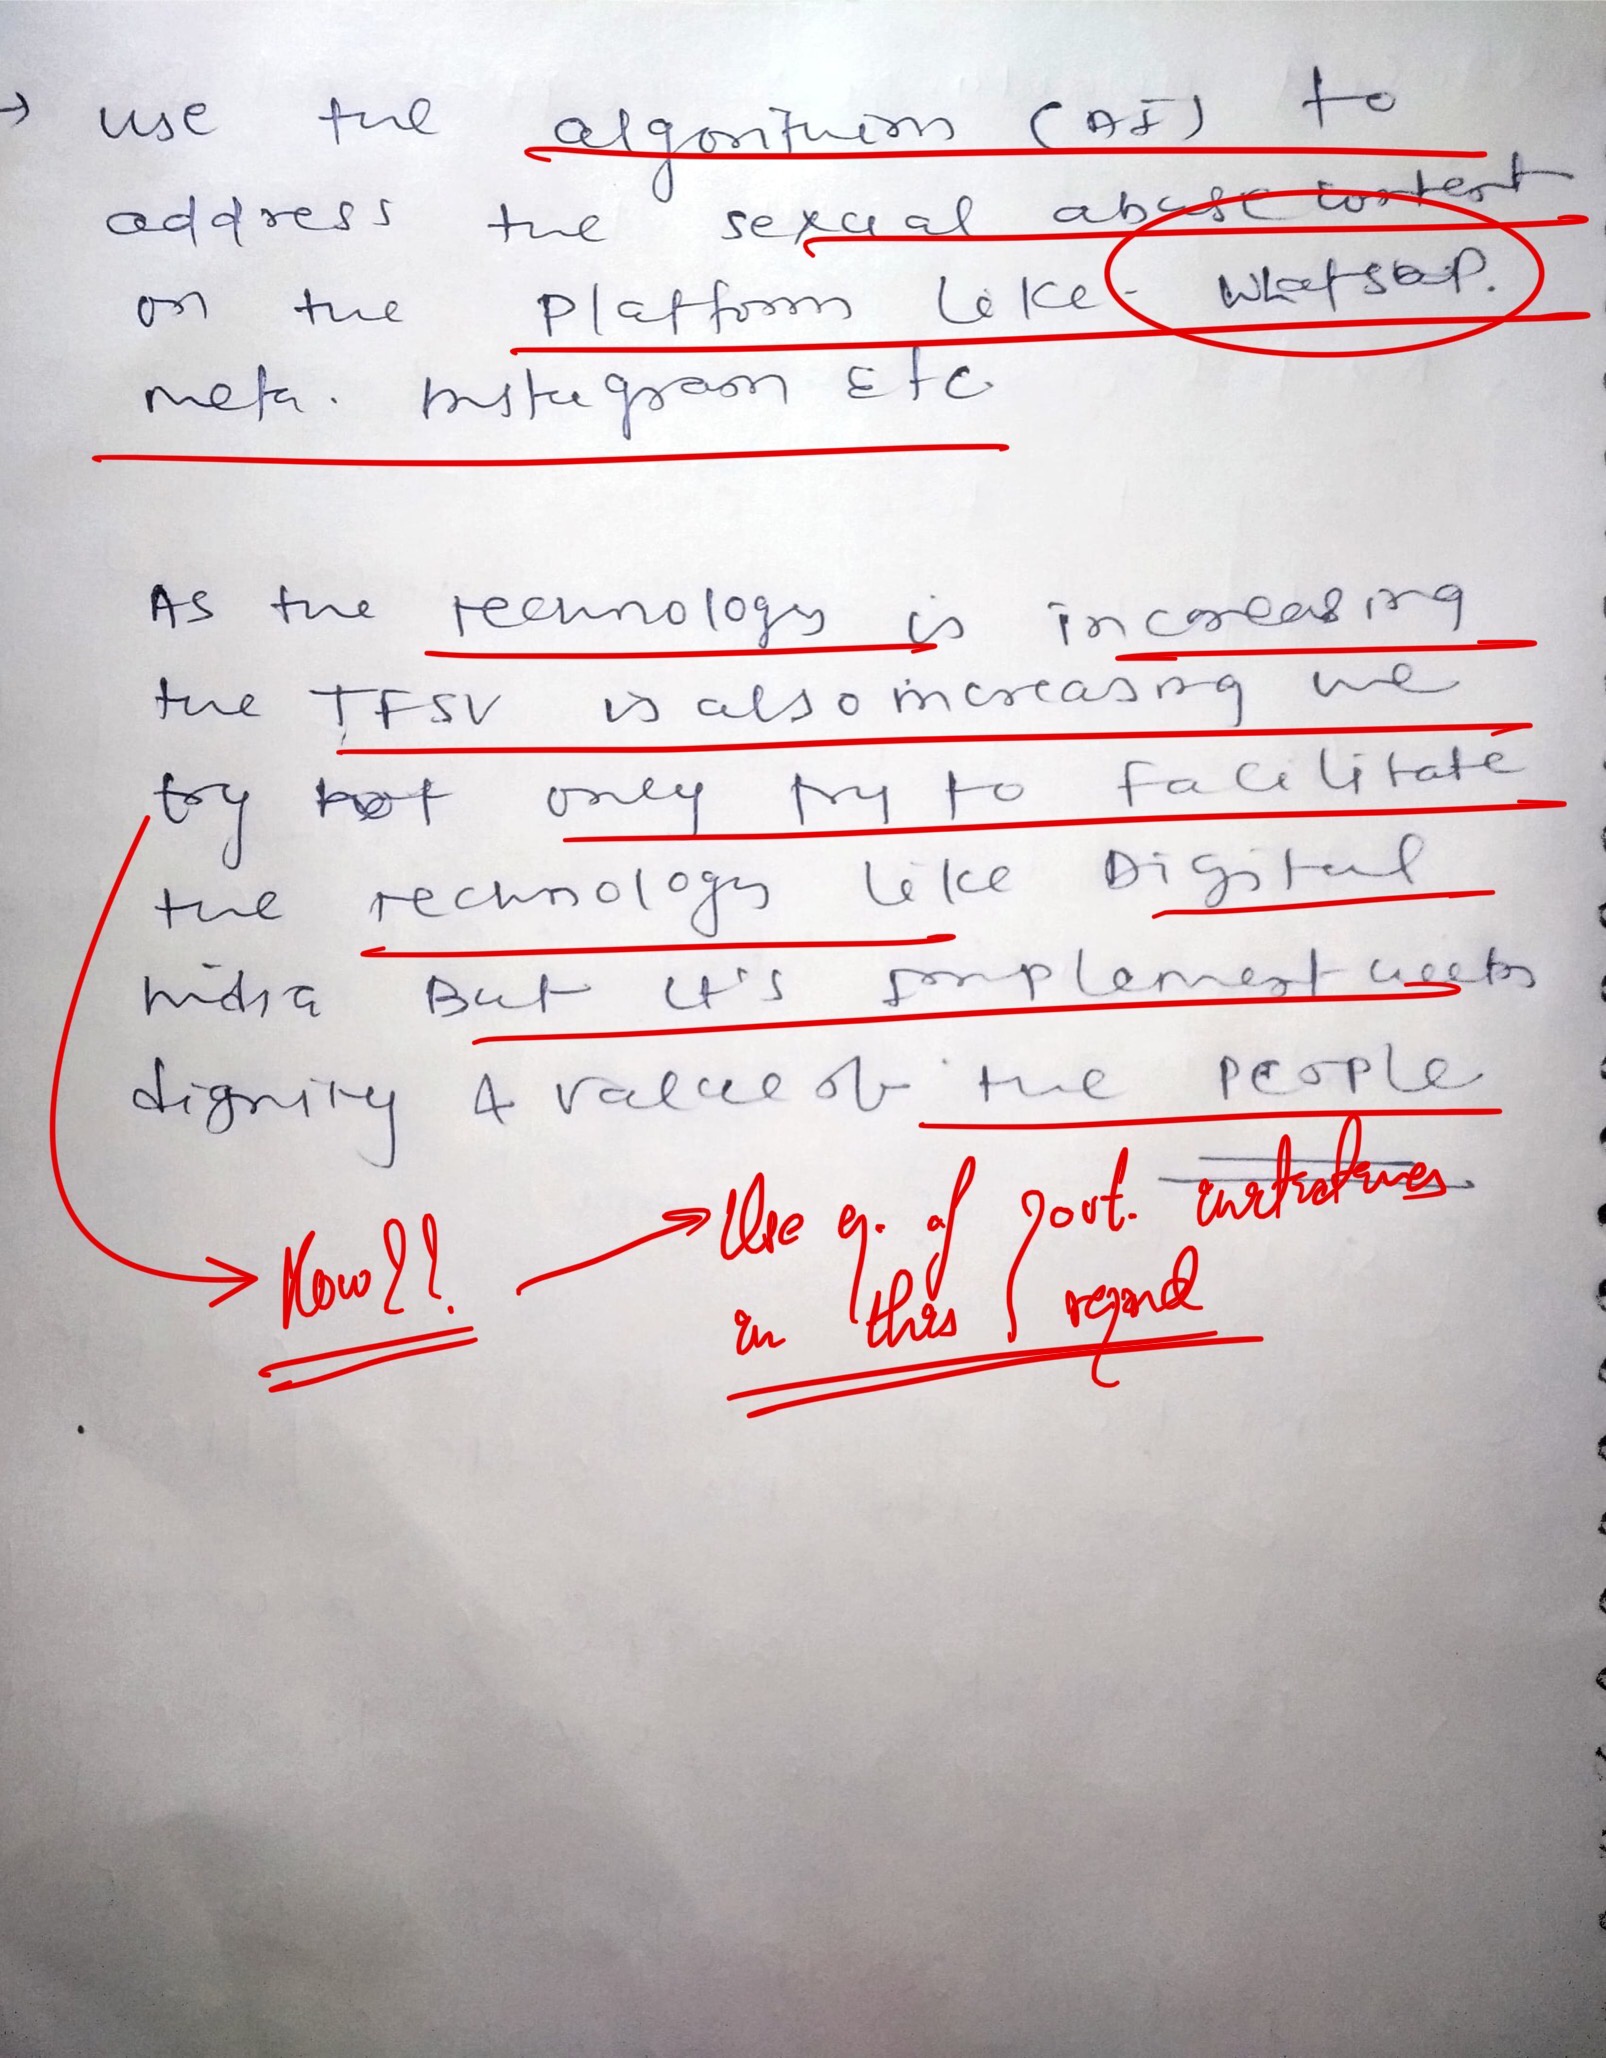 → use the algorithms (AI) to
address the sexual abuse content
on the platform like - Whatsap.
meta. Instagram Etc
As the technology is increasing
the TFSV is also increasing we
try not only try to facilitate
the technology like Digital
India But it's implement
dignity & value of the people
How??
Use eg. of Govt. initiatives
in this regard